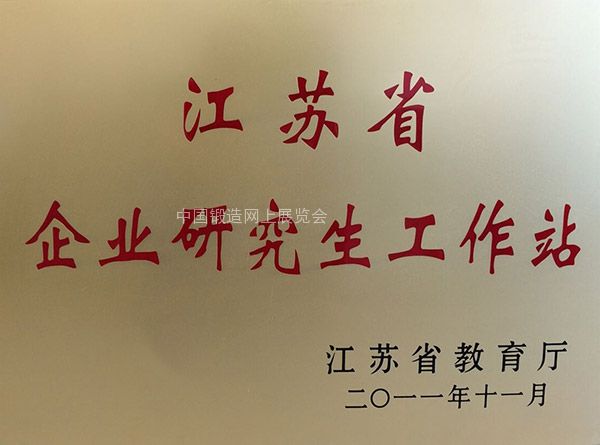 江苏省
中国锻造网上展览会
企业研究生工作站
江苏省教育厅
二〇一一年十一月